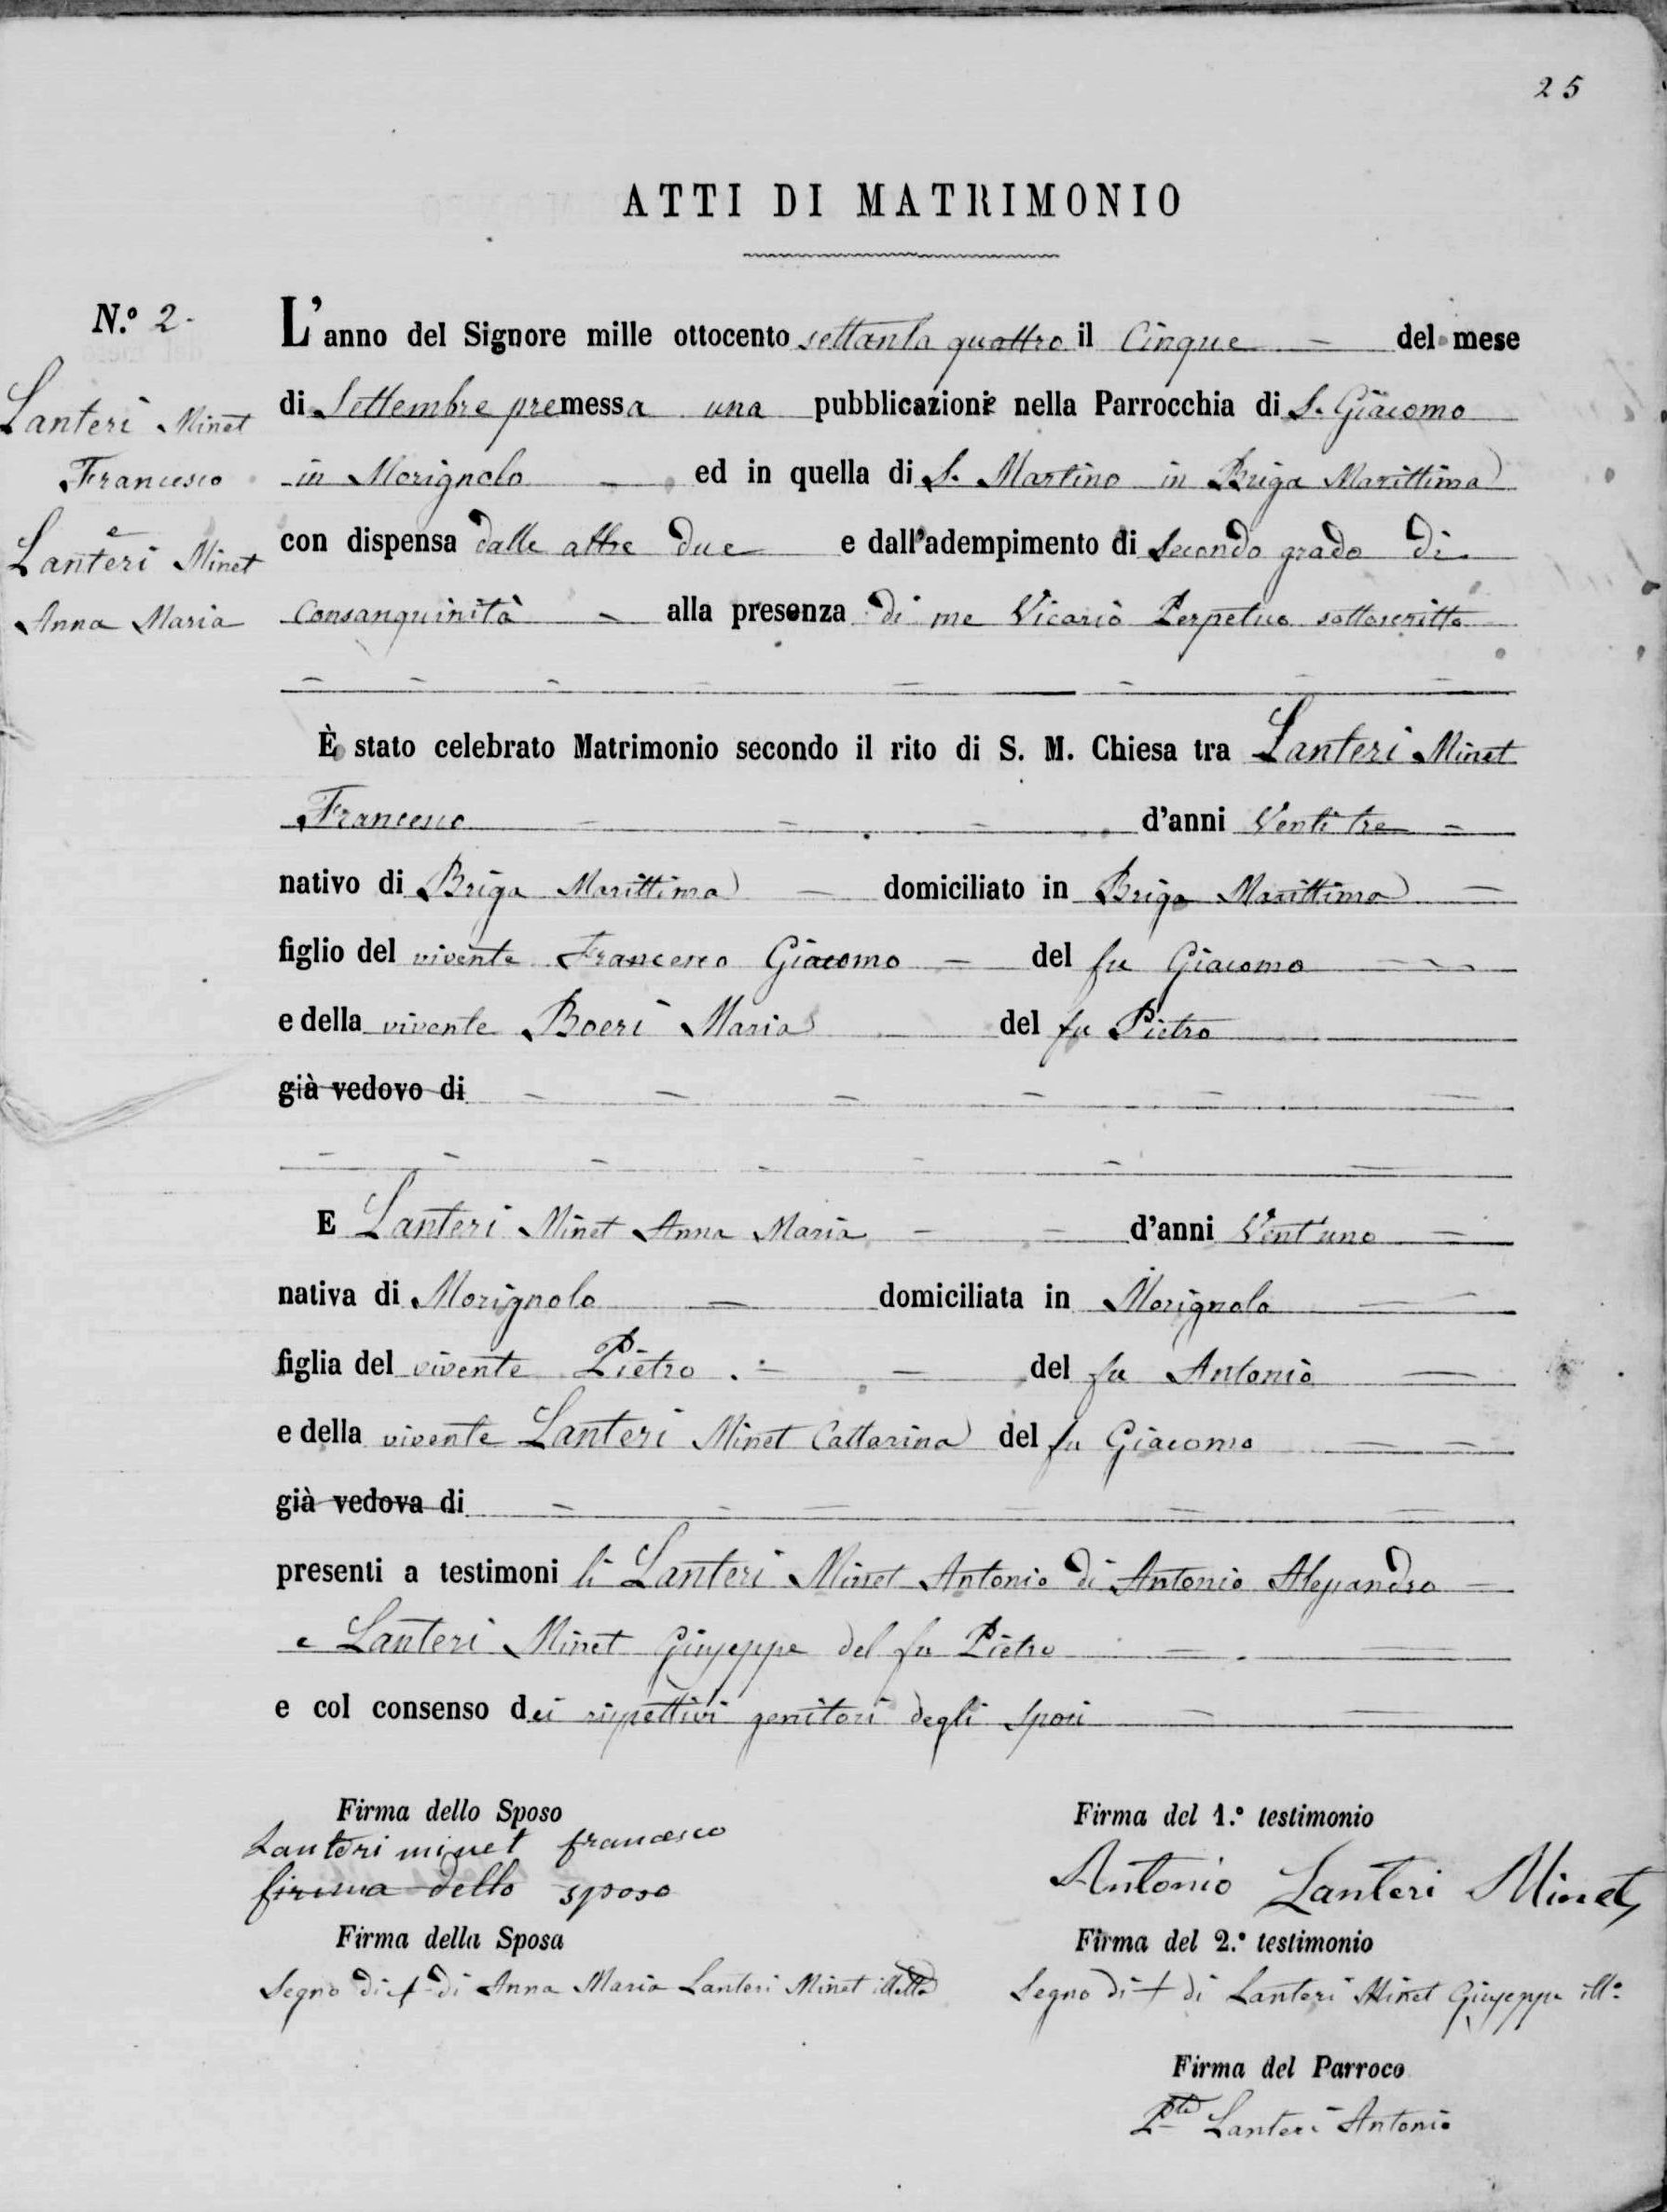 25
ATTI DI MATRIMONIO
N.º 2.
Lanteri Minet
Francesco
e
Lanteri Minet
Anna Maria
L'anno del Signore mille ottocento settanta quattro il Cinque del mese
di Settembre premessa una pubblicazione nella Parrocchia di S. Giacomo
in Morignolo ed in quella di S. Martino in Briga Marittima
con dispensa dalle altre due e dall'adempimento di Secondo grado di
Consanguinità alla presenza di me Vicario Perpetuo sottoscritto
È stato celebrato Matrimonio secondo il rito di S. M. Chiesa tra Lanteri Minet
Francesco d'anni Venti tre
nativo di Briga Marittima domiciliato in Briga Marittima
figlio del vivente Francesco Giacomo del fu Giacomo
e della vivente Boeri Maria del fu Pietro
già vedovo di
E Lanteri Minet Anna Maria d'anni Vent'uno
nativa di Morignolo domiciliata in Morignolo
figlia del vivente Pietro del fu Antonio
e della vivente Lanteri Minet Cattarina del fu Giacomo
già vedova di
presenti a testimoni li Lanteri Minet Antonio di Antonio Alessandro
e Lanteri Minet Giuseppe del fu Pietro
e col consenso dei rispettivi genitori degli sposi
Firma dello Sposo
Lanteri minet francesco
firma dello sposo
Firma della Sposa
Segno di + di Anna Maria Lanteri Minet
Firma del 1.º testimonio
Antonio Lanteri Minet
Firma del 2.º testimonio
Segno di + di Lanteri Minet Giuseppe ill.º
Firma del Parroco
Lanteri Antonio